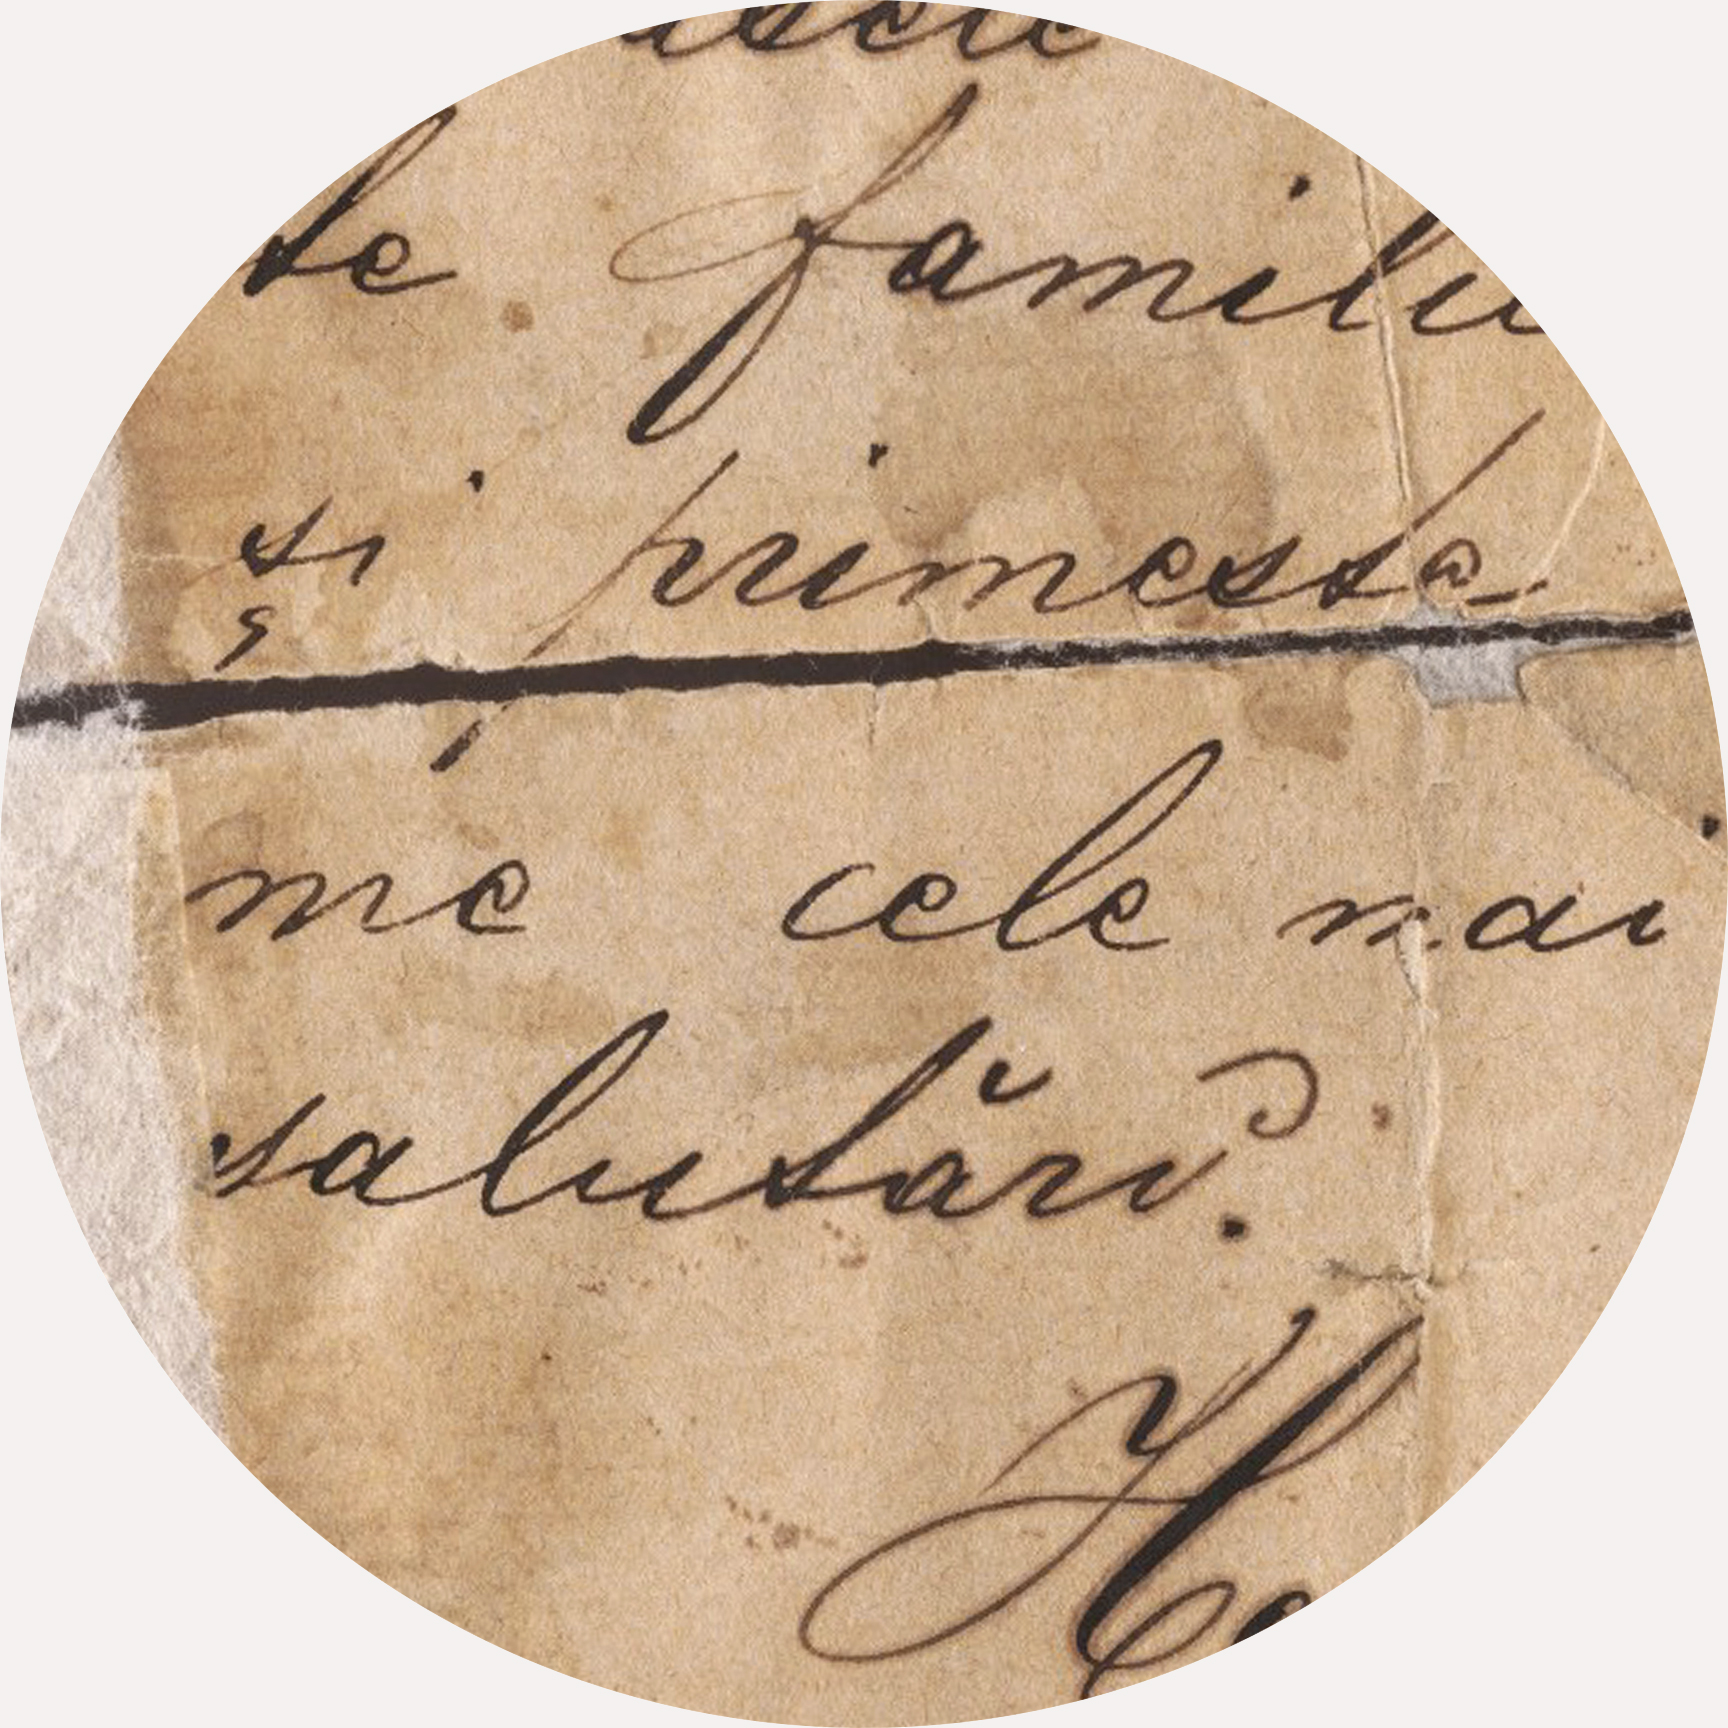 te famili
și primește
me cele mai
salutări.